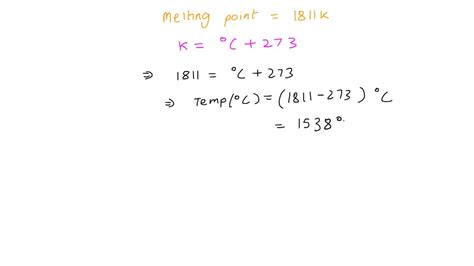 Melting point = 1811k
K = °C + 273
⇒ 1811 = °C + 273
⇒ Temp(°C) = (1811 - 273) °C
= 1538°